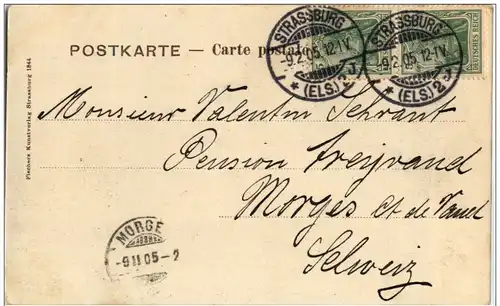 POSTKARTE — Carte postale
STRASSBURG
-9.2.05.12-1V.
* (ELS.) 2 J.
STRASSBURG
-9.2.05.12-1V.
* (ELS.) 2 J.
DEUTSCHES REICH
Fischers Kunstverlag Strassburg 1844
Monsieur Valentin Schrant
Pension Treyvaud
Morges Ct de Vaud
Schweiz
MORGE
-9 II 05-2